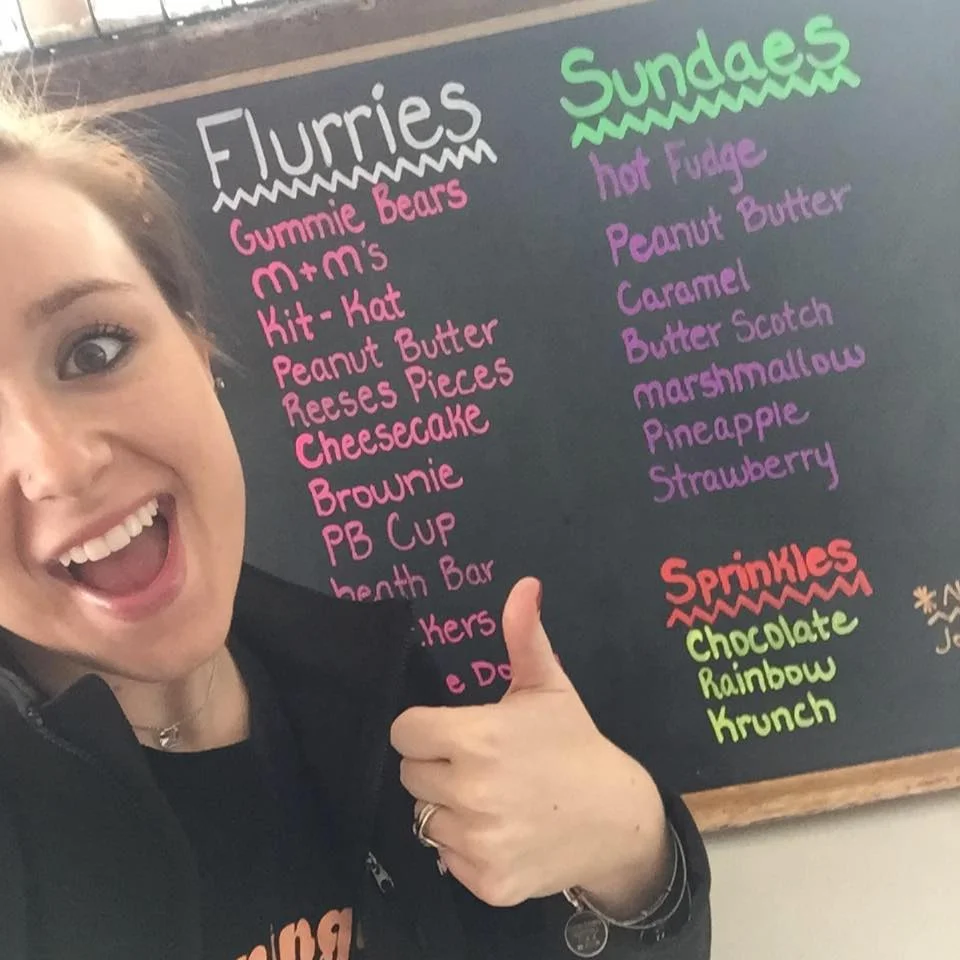 Flurries
Gummie Bears
m+m's
Kit-Kat
Peanut Butter
Reeses Pieces
Cheesecake
Brownie
PB Cup
heath Bar
kers
e Do
Sundaes
hot Fudge
Peanut Butter
Caramel
Butter Scotch
marshmallow
Pineapple
Strawberry
Sprinkles
Chocolate
Rainbow
Krunch